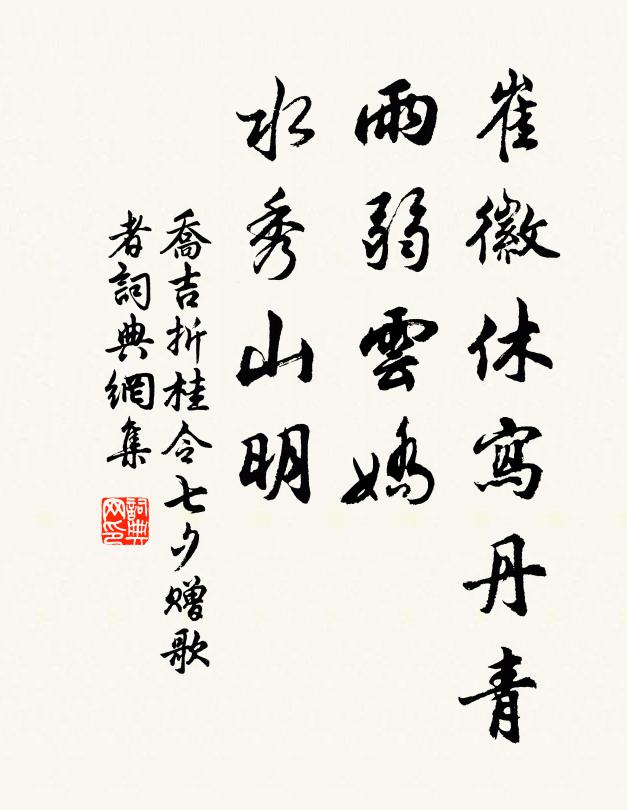 崔徽休寫丹青
雨弱雲嬌
水秀山明
喬吉折桂令七夕赠歌
者詞典網集
詞典
网印